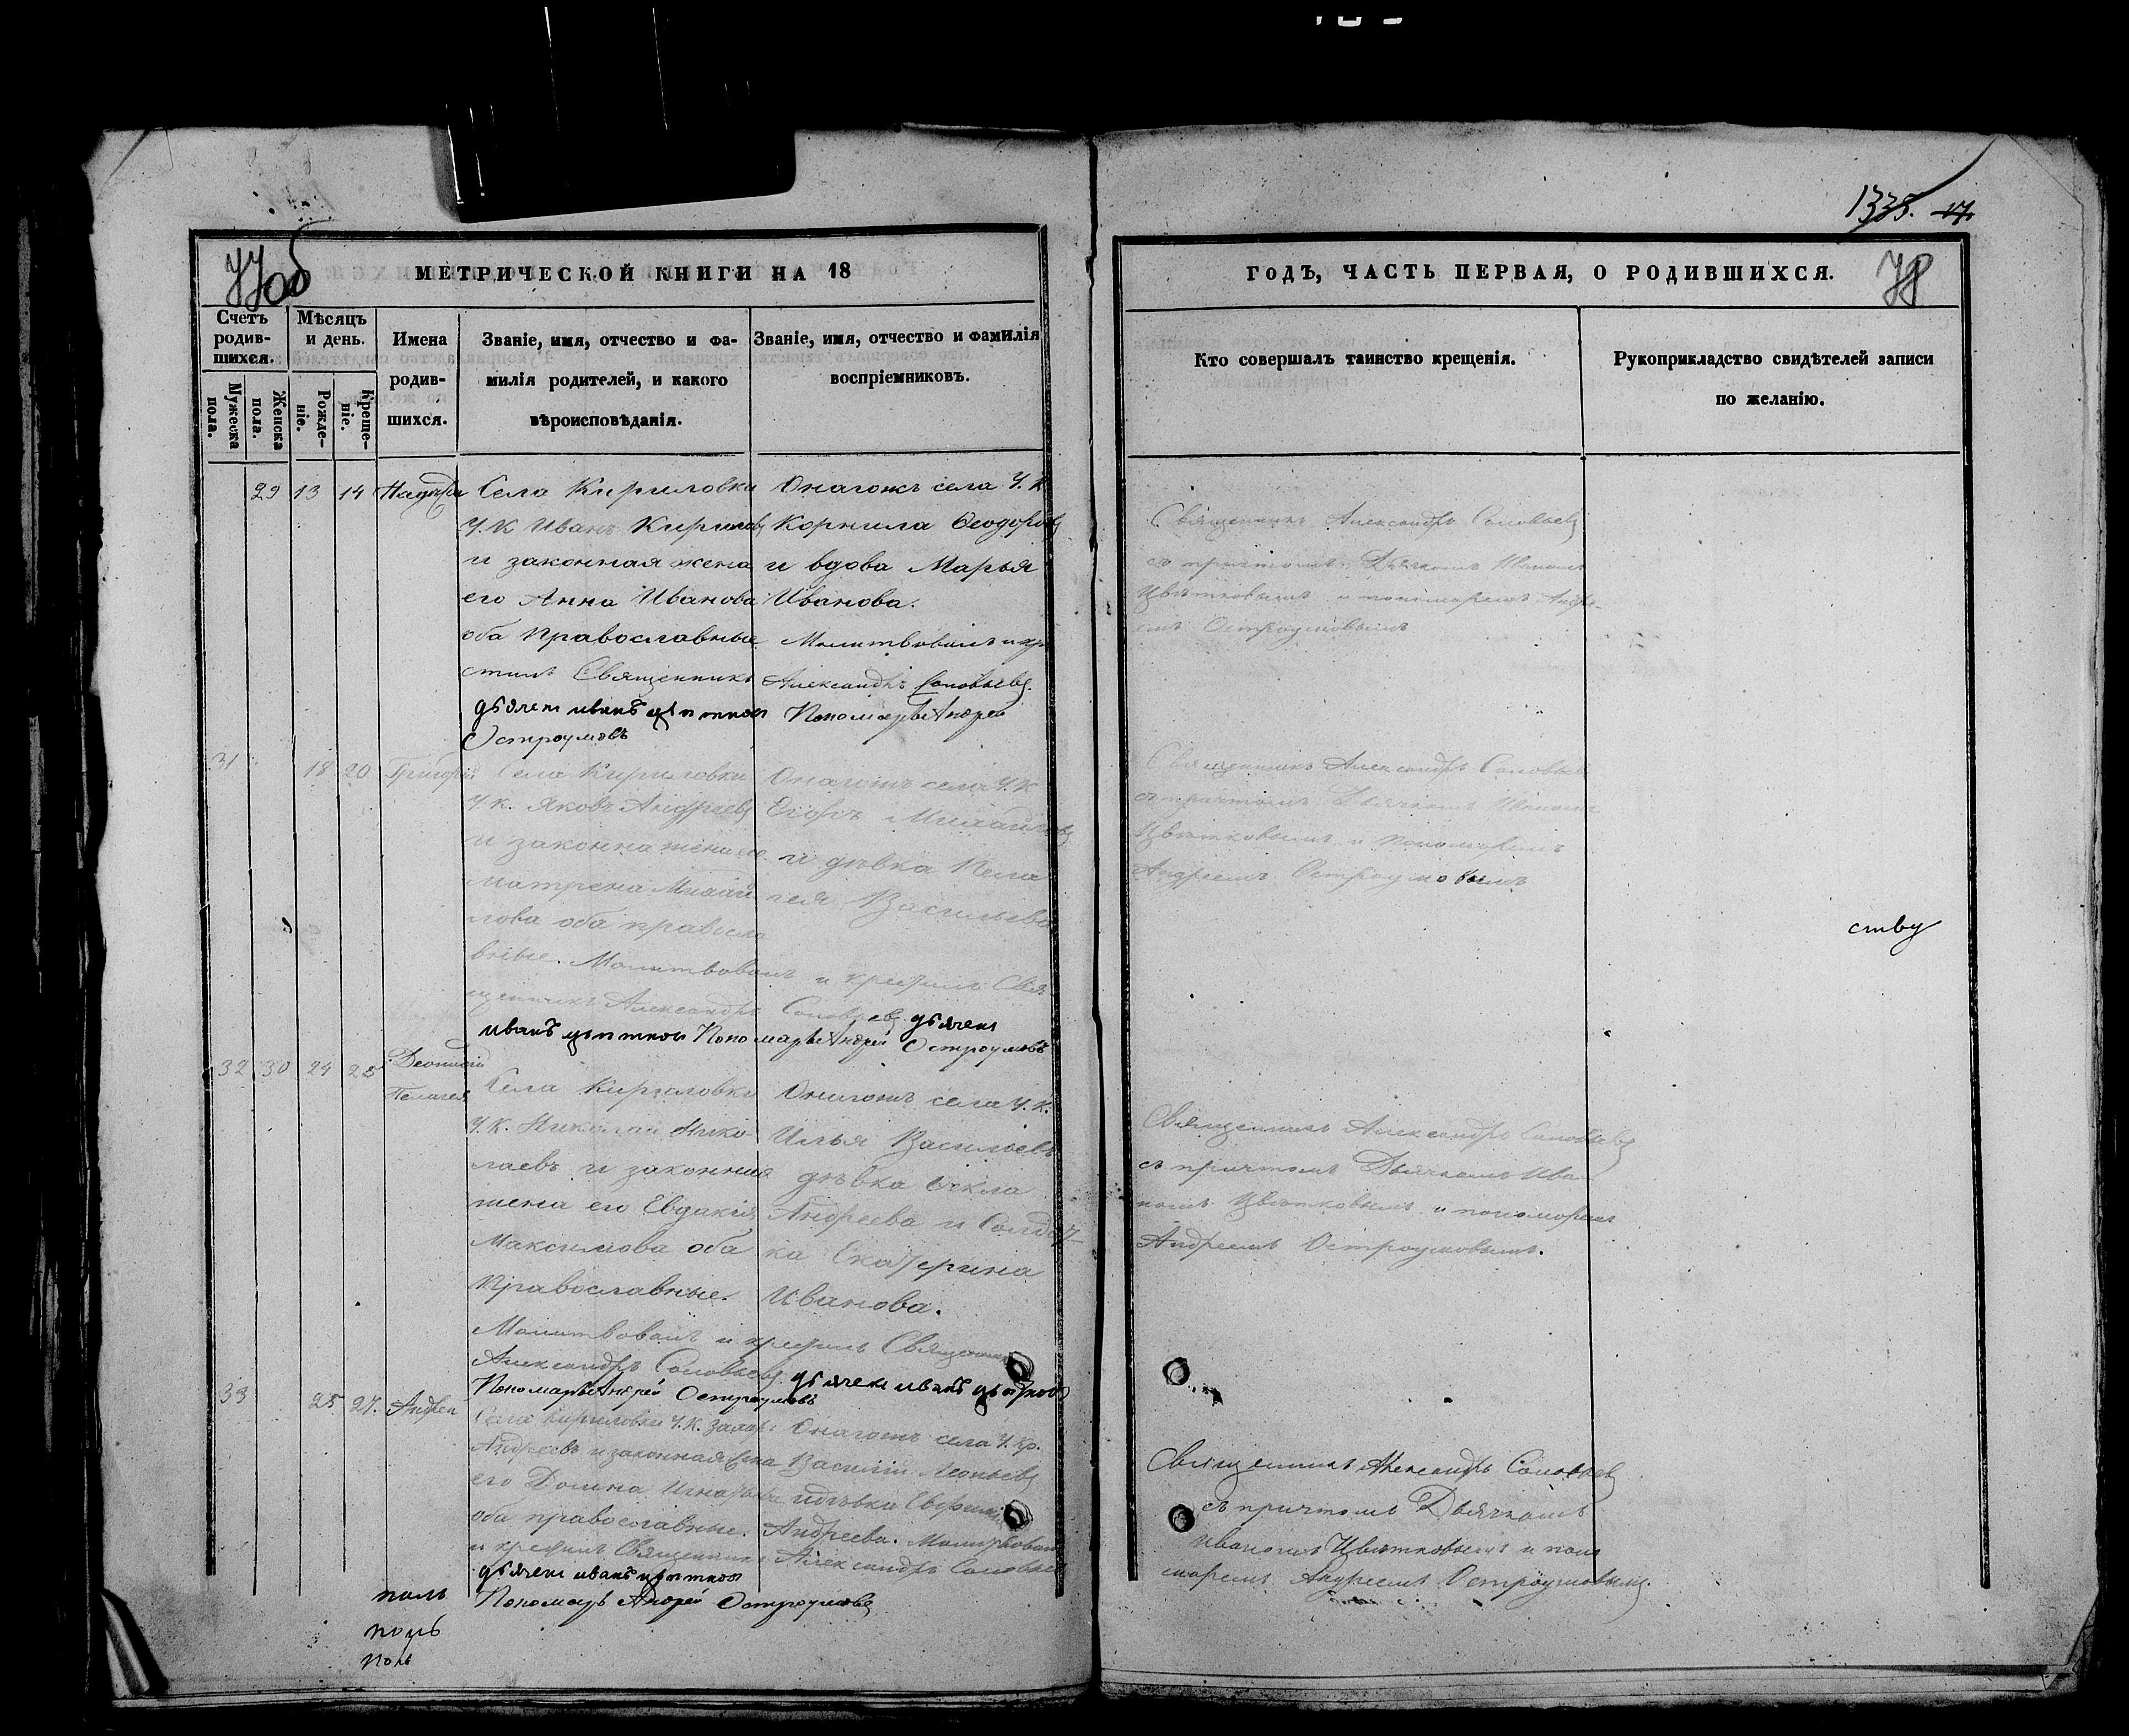 1335. 17.
77об
МЕТРИЧЕСКОЙ КНИГИ НА 18
Счетъ родив-шихся.
Мужеска пола.
Женска пола.
Мѣсяцъ и день.
Рожде-ніе.
Креще-ніе.
Имена родив-шихся.
Званіе, имя, отчество и фа-милія родителей, и какого вѣроисповѣданія.
Званіе, имя, отчество и фамилія воспріемниковъ.
29 13 14
Села Кириловки
У. К Иванъ Кириловъ
и законная жена
его Анна Иванова
оба Православные
Онагожъ села У. К
Корнила Ѳеодоровъ
и вдова Марья
Иванова.
Молитвовалъ и кре
стилъ Священникъ Александръ Соловьевъ.
Пономарь Андрей
Остроумовъ
31 18 20 Григорій
Села Кириловки
У. К. Яковъ Андреевъ
и законна жена его
Матрена Михай
лова оба правосла
вные. Молитвовалъ и крестилъ Свя
щенникъ Александръ Соловьевъ
Онагожъ села У. К
Егоръ Михайловъ
и дѣвка Пела
гея Васильева
Пономарь Андрей Остроумовъ
32 30 24 25
Пелагея
Села Кириловки
У. К. Николай Нико-
лаевъ и законная
жена его Евдакія
Максимова оба
Православные.
Онагожъ села У. К.
Илья Васильевъ
дѣвка Ѳекла
Андреева и Солдат-
ка Екатерина
Иванова.
Молитвовалъ и крестилъ Священникъ
Александръ Соловьевъ.
Пономарь Андрей Остроумовъ
33 25 27. Андрей
Села Кириловки У. К. Захаръ
Андреевъ и законная жена
его Домна
оба православные.
Онагожъ села У. Кр.
Василій
и дѣвка
Андреева. Молитвовалъ
и крестилъ Священникъ Александръ Соловьевъ
Пономарь Андрей Остроумовъ
полъ
полъ
ГОДЪ, ЧАСТЬ ПЕРВАЯ, О РОДИВШИХСЯ.
78
Кто совершалъ таинство крещенія.
Рукоприкладство свидѣтелей записи по желанію.
Священникъ Александръ Соловьевъ
съ причтомъ Дьячкомъ Иваномъ
Цвѣтковымъ и пономаремъ Андре-
емъ Остроумовымъ
Священникъ Александръ Соловьевъ
съ причтомъ Дьячкомъ Иваномъ
Цвѣтковымъ и пономаремъ
Андреемъ Остроумовымъ
ству
Священникъ Александръ Соловьевъ
съ причтомъ Дьячкомъ Ива
номъ Цвѣтковымъ и пономаремъ
Андреемъ Остроумовымъ.
Священникъ Александръ Соловьевъ
съ причтомъ Дьячкомъ
Иваномъ Цвѣтковымъ и поно
маремъ Андреемъ Остроумовымъ.